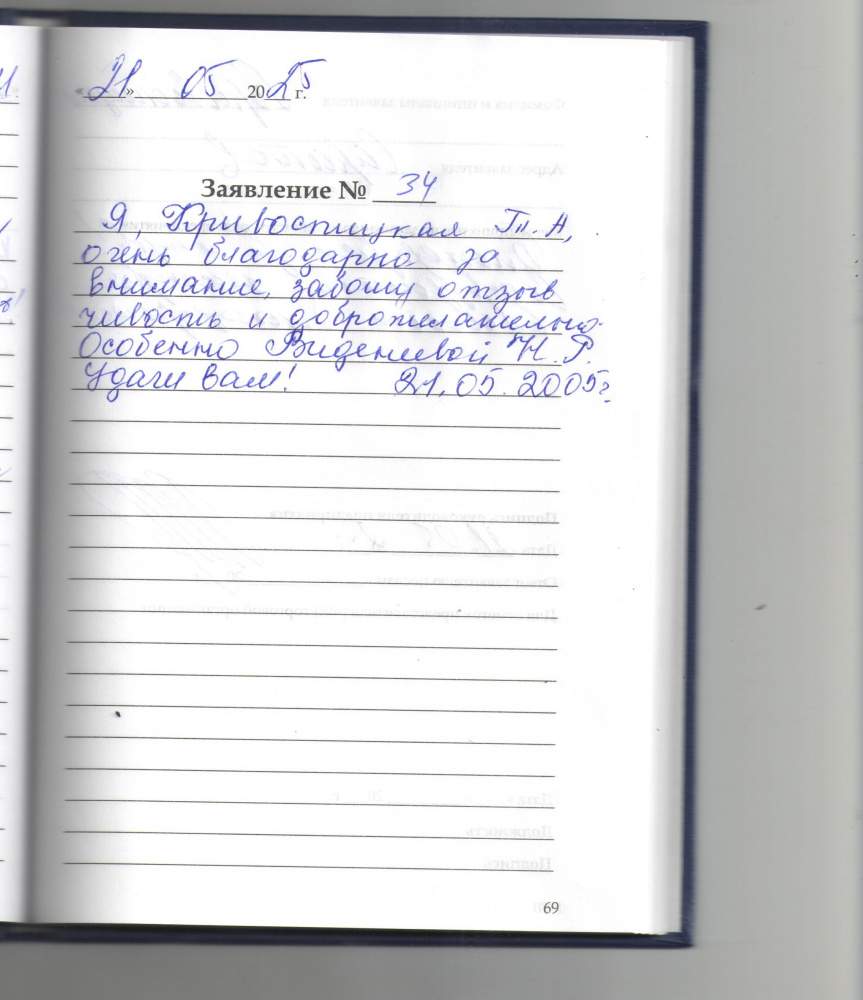 «21» 05 2025 г.
Заявление № 34
Я, Кривоспицкая Т. А,
очень благодарна за
внимание, заботу отзыв
чивость и доброжелательно.
Особенно Виденеевой Н. Р.
Удачи вам! 21.05.2005г
69